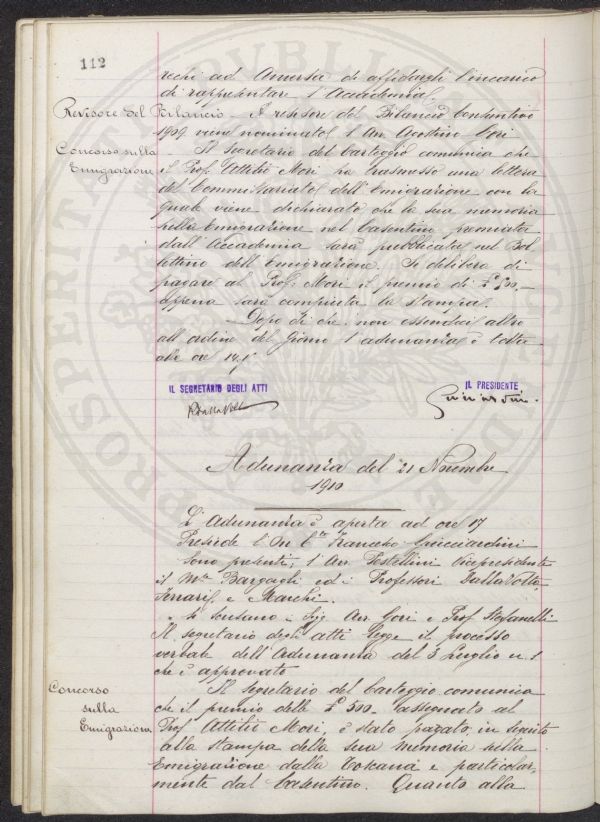 112
rechi ad Anversa di affidargli l'incarico
di rappresentare l'Accademia
Revisore del Bilancio - A revisore del Bilancio Consuntivo
1909 viene nominato l'Avv. Agostino Gori
Concorso sulla Emigrazione
Il Segretario del Carteggio comunica che
il Prof. Attilio Mori ha trasmesso una lettera
del Commissariato dell'Emigrazione con la
quale viene dichiarato che la sua memoria
sulla Emigrazione nel Casentino premiata
dall'Accademia sarà pubblicata nel Bol
lettino dell'Emigrazione. Si delibera di
pagare al Prof. Mori il premio di £ 500.-
appena sarà compiuta la stampa.
Dopo di che non essendoci altro
all'ordine del giorno l'adunanza è tolta
alle ore
IL SEGRETARIO DEGLI ATTI
IL PRESIDENTE
Guicciardini
Adunanza del 21 Novembre
1910
L'Adunanza è aperta ad ore 17
Presiede l'On. Cte Francesco Guicciardini
Sono presenti, l'Avv. Pestellini Vicepresidente
il Mse Bargagli ed i Professori DallaVolta,
Ferrari, e Marchi.
Si scusano i Sigg. Avv. Gori e Prof Stefanelli
Il segretario degli atti legge il processo
verbale dell'Adunanza del 3 Luglio u. s
che è approvato
Concorso sulla Emigrazione
Il segretario del Carteggio comunica
che il premio delle £ 500. assegnato al
Prof Attilio Mori, è stato pagato, in seguito
alla stampa della sua memoria sulla
Emigrazione dalla Toscana e particolar,
mente dal Casentino. Quanto alla
PROSPERITATI
PVBLICAE